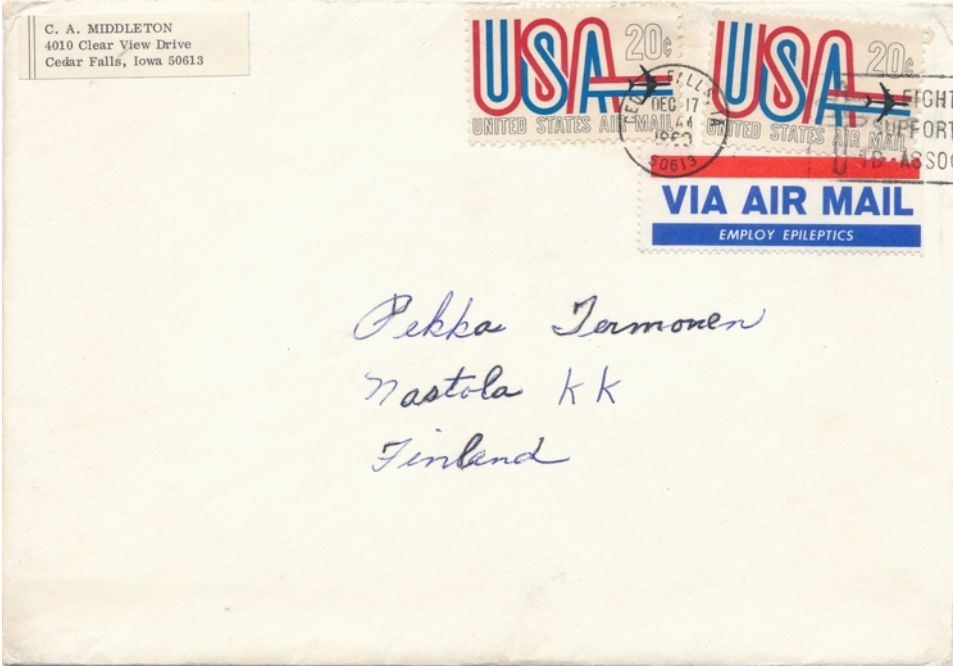 C. A. MIDDLETON
4010 Clear View Drive
Cedar Falls, Iowa 50613
USA 20c
UNITED STATES AIR MAIL
USA 20c
UNITED STATES AIR MAIL
FALLS
DEC 17
AM
50613
FIGHT
SUPPORT
TB ASSOC
VIA AIR MAIL
EMPLOY EPILEPTICS
Pekka Termonen
Nastola KK
Finland